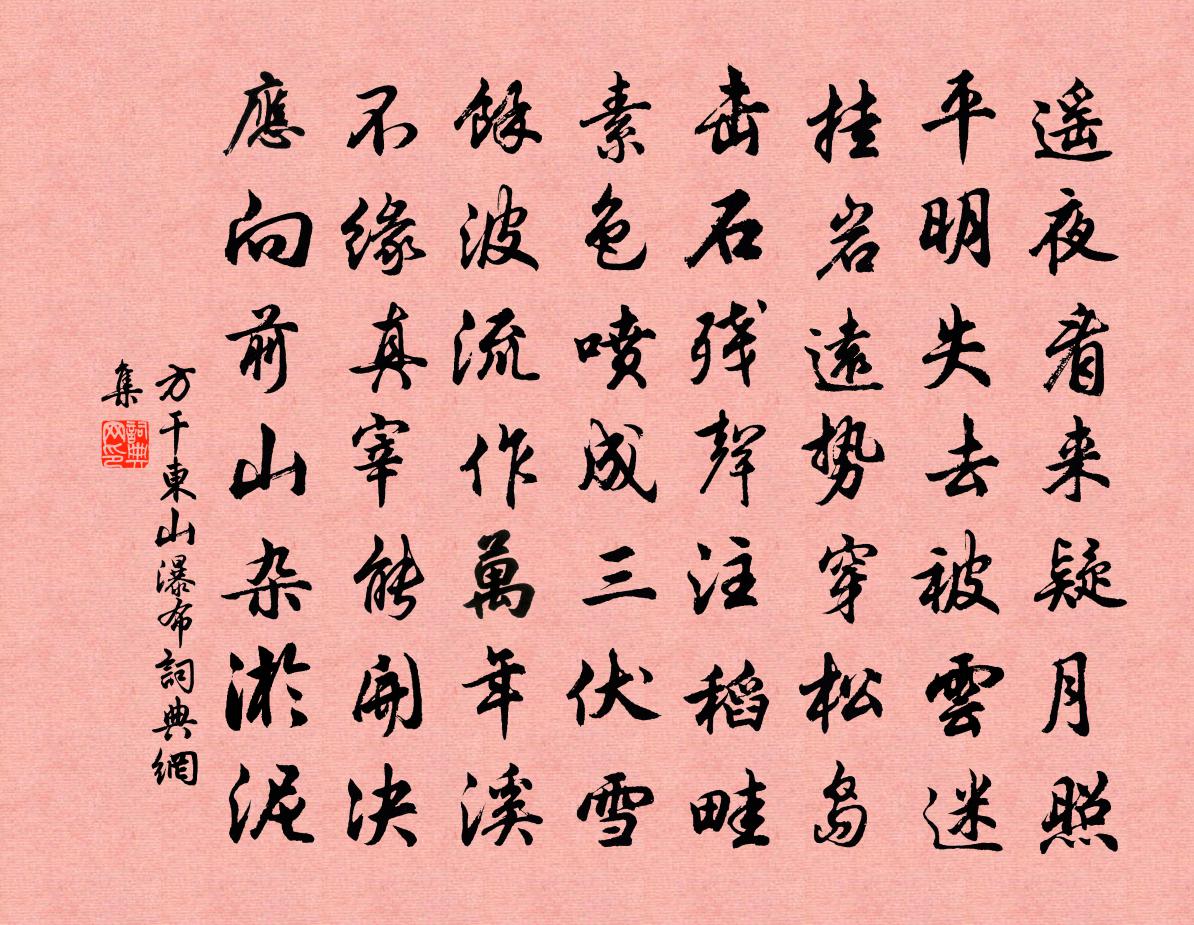 遥夜看来疑月照
平明失去被雲迷
挂岩遠势穿松島
击石残聲注稻畦
素色噴成三伏雪
餘波流作萬年溪
不缘真宰能開决
應向前山杂淤泥
方干東山瀑布詞典網
集
詞典
网印